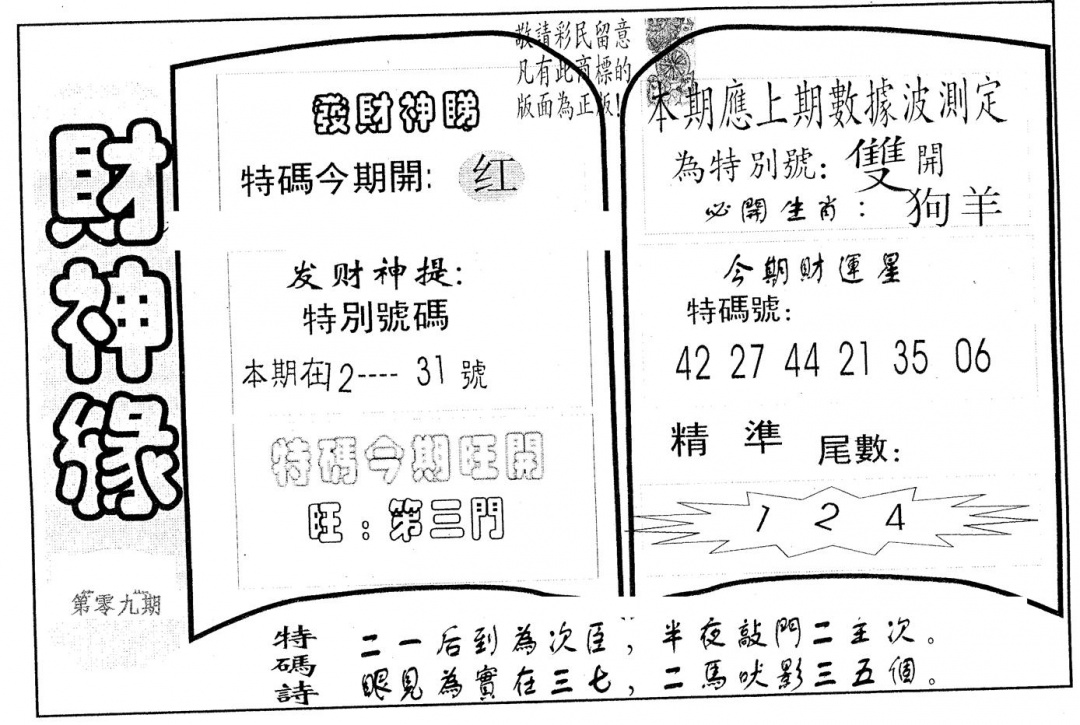 財神緣
第零九期
敬請彩民留意
凡有此商標的
版面為正版!
發財神睇
特碼今期開: 红
发财神提:
特別號碼
本期在12---- 31 號
特碼今期旺開
旺:第三門
本期應上期數據波測定
為特別號: 雙開
必開生肖: 狗羊
今期財運星
特碼號:
42 27 44 21 35 06
精 準 尾數:
1 2 4
特碼詩
二一后到為次臣, 半夜敲門二主次。
眼見為實在三七, 二馬吠影三五個。